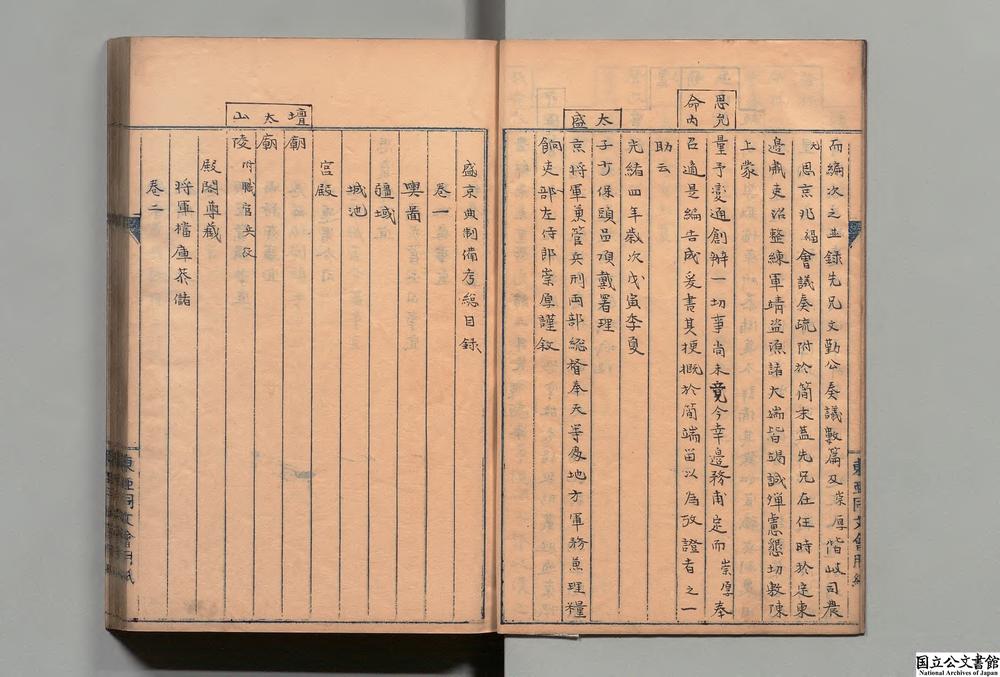 而編次之並錄先兄文勤公奏議數篇及崇厚偕岐司農
元恩京兆福會議奏疏附於簡末蓋先兄在任時於定東
邊肅吏治整練軍靖盜源諸大端皆竭誠殫慮懇切敷陳
上蒙
恩允量予變通創辦一切事尚未竟今幸邊務甫定而崇厚奉
命內召適是編告成爰書其梗概於簡端留以為攷證者之一
助云
光緒四年歲次戊寅季夏
太子少保頭品頂戴署理
盛京將軍兼管兵刑兩部總督奉天等處地方軍務兼理糧
餉吏部左侍郎崇厚謹敘
盛京典制備考總目錄
卷一
輿圖
疆域
城池
宮殿
壇廟
太廟
山陵附職官兵役
殿閣尊藏
將軍檔庫恭儲
卷二
東亞同文會用紙
東亞同文會用紙
国立公文書館
National Archives of Japan